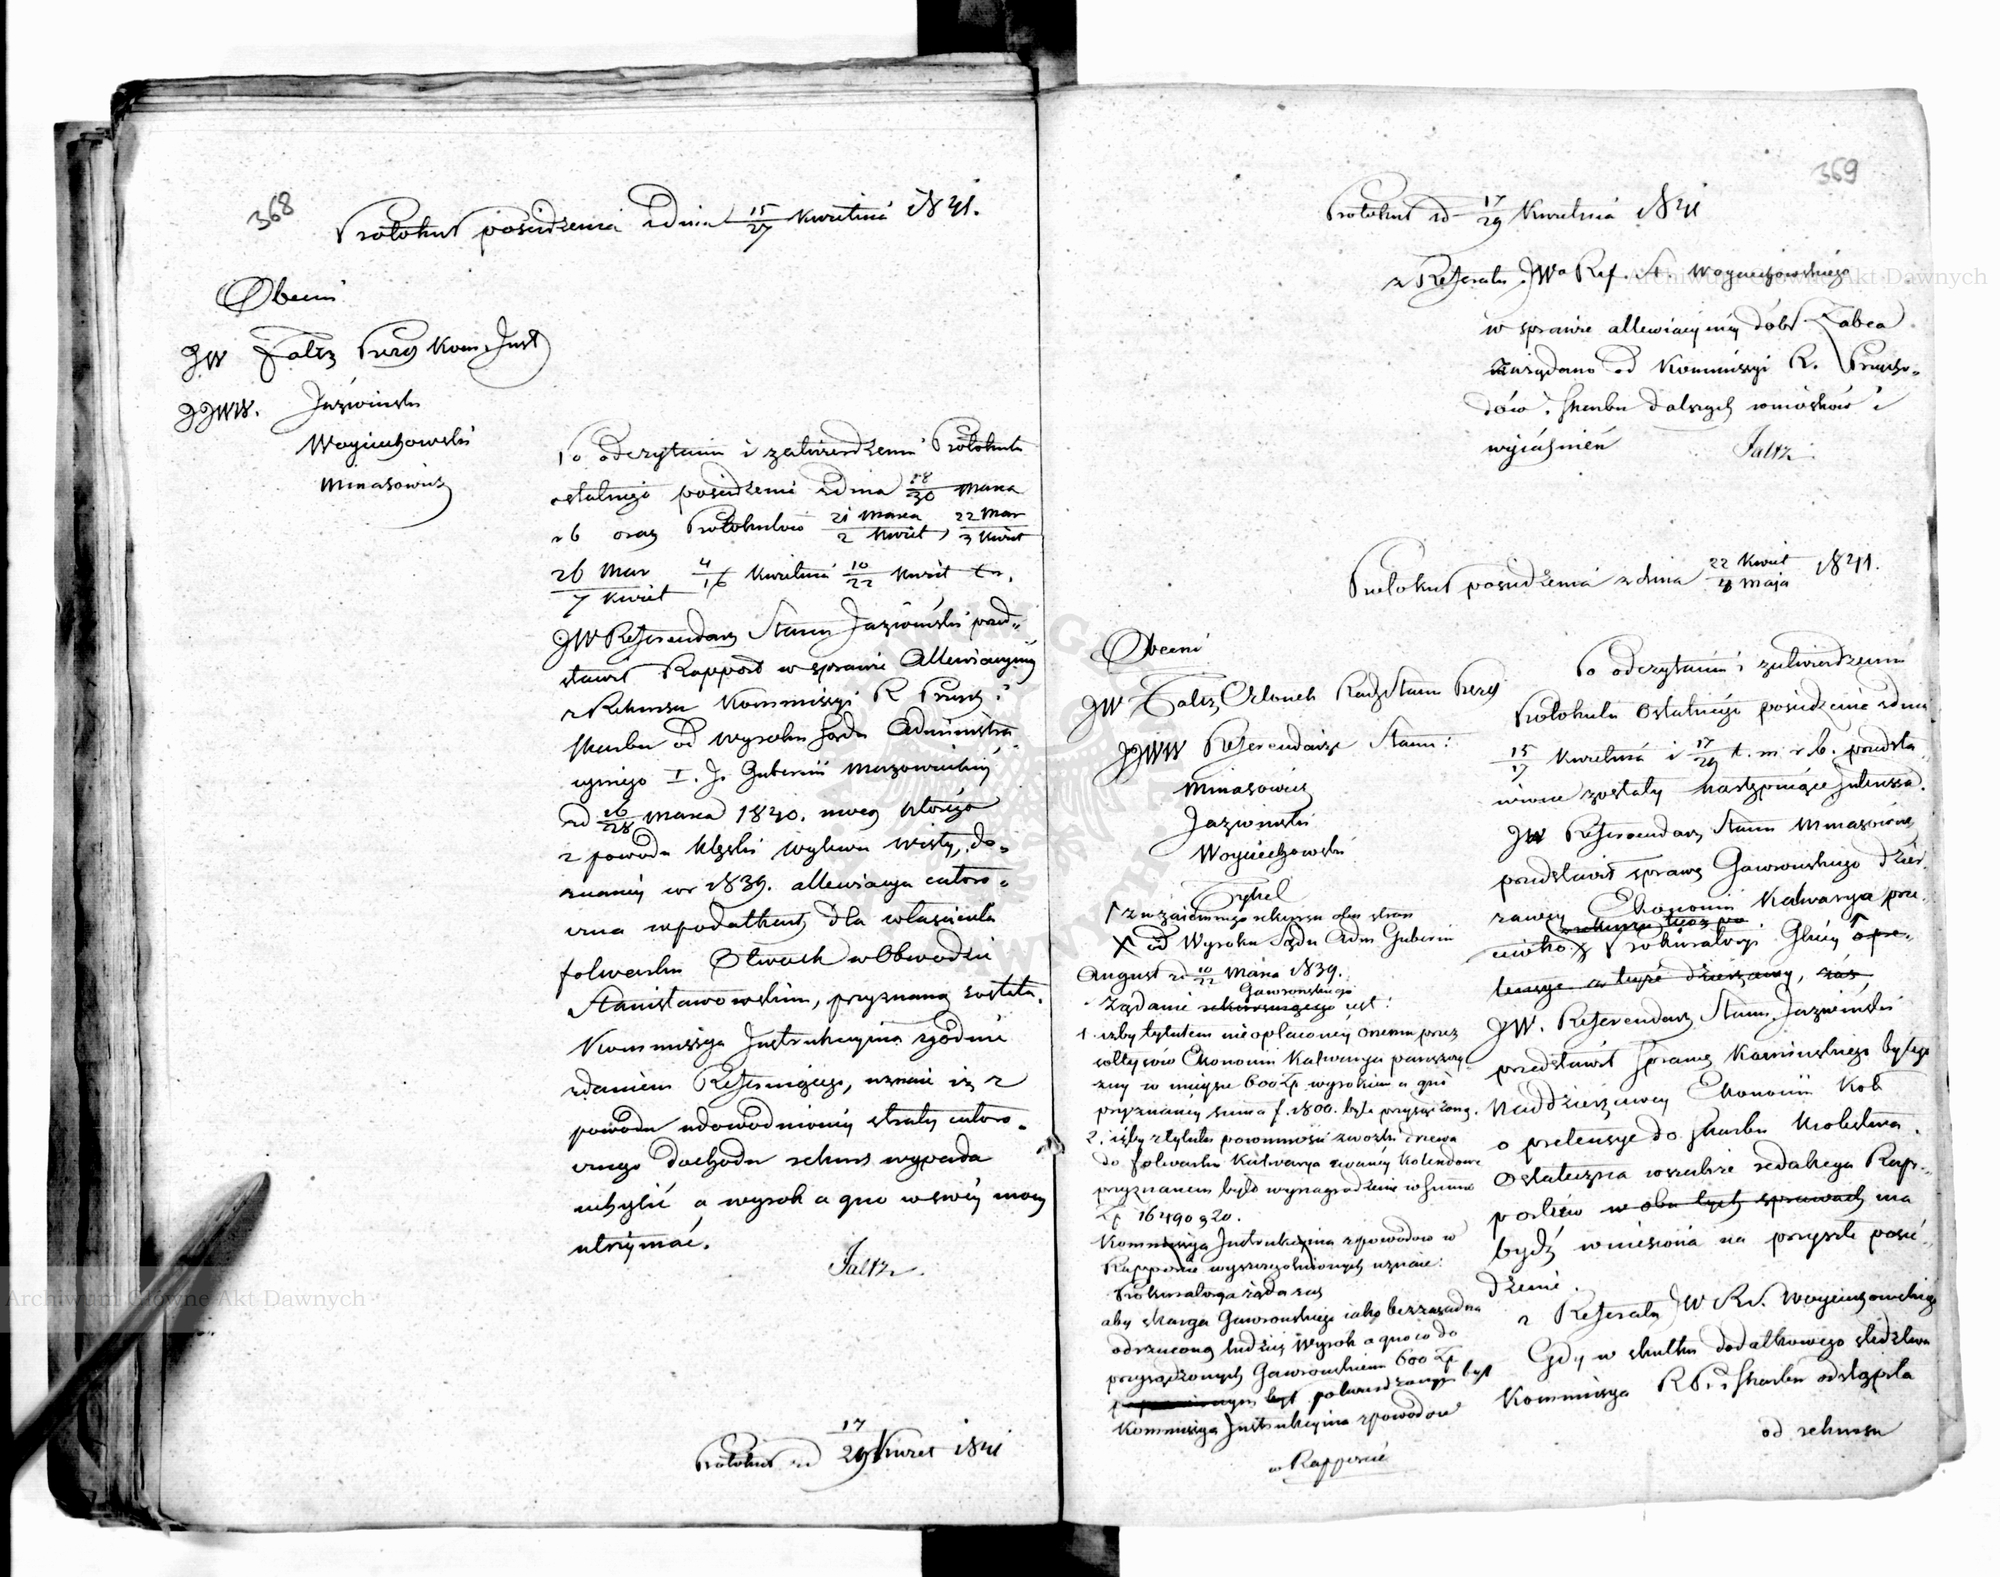 368
Protokuł posiedzenia zdnia 15/27 Kwietnia 1841.
Obecni
JW Faltz Prezy Kom. Inst
JJWW. Jaźwiński
Woyciechowski
Minasowicz
Po odczytaniu i zatwierdzeniu Protokułu
ostatniego posiedzenia zdnia 18/30 Marca
r b oraz Protokułów 21 Marca/2 Kwiet, 22 Mar/3 Kwiet
26 Mar/7 Kwiet 4/16 Kwietnia 10/22 Kwiet
JW Referendarz Stanu Jaźwiński przed-
stawił Rapport w sprawie Allewiacyiney
z Rekursu Kommissyi R Przych i
Skarbu od wyroku Sądu Administra-
cyinego I. J. Gubernii Mazowieckiey
zd 16/28 Marca 1840. mocą którego
z powodu klęski wylewu Wisły, do-
znaney w r 1839. allewiacya całoro-
czna w podatkach dla właściciela
folwarku Otwock w Obwodzie
Stanisławowskim, przyznaną została.
Kommissya Instrukcyina zgodnie
zdaniem Referuiącego, uznaie iż z
powodu udowodnioney straty całoro-
cznego dochodu rekurs wypada
uchylić a wyrok a quo w swéy mocy
utrzymać.
Faltz
Protokuł zd 17/29 Kwiet 1841
369
Protokuł zd 17/29 Kwietnia 1841
z Referatu JWo Ref. St. Woyciechowskiego
w sprawie allewiacyiney dóbr Łabca
zażądano od Kommissyi R. Przycho-
dów i Skarbu dalszych wniosków i
wyiaśnień Faltz
Protokuł posiedzenia z dnia 22 Kwiet/4 Maja 1841.
Obecni
JW Faltz Członek Rady Stanu Prezy
JJWW Referendarze Stanu:
Minasowicz
Jaźwiński
Woyciechowski
Tykel
z wzaiemnego rekursu obu stron
X od Wyroku Sądu Adm Gubernii
August zd 10/22 Marca 1839.
Żądanie rekuruiącego Gawrońskiego iest:
1. iżby tytułem nieopłaconey przez
Ekonomii Kalwarya pańszczy-
zny w mieysce 600 Zp wyrokiem a quo
przyznaney summa f. 1800. była przysądzoną.
2. iżby z tytułu powinności zwozki drzewa
do folwarku Kalwarya zwaney Kolendowe
przyznanem było wynagrodzenie w summie
Zp 16490 g 20.
Kommissya Instrukcyina z powodów w
Rapporcie wyszczególnionych uznaie:
Prokuratorya żąda zaś
aby skarga Gawrońskiego iako bezzasadna
odrzuconą tudzież Wyrok a quo co do
przysądzonych Gawrońskiemu 600 Zp
był potwierdzonym był
Kommissya Instrukcyina z powodów
w Rapporcie
Po odczytaniu i zatwierdzeniu
Protokułu Ostatniego posiedzenia zdnia
15/27 Kwietnia i 17/29 t. m. r b. przedsta-
wione zostały następuiące Interessa.
JW Referendarz Stanu Minasowicz
przedstawił sprawę Gawrońskiego dzier-
żawcy Ekonomii Kalwarya prze-
ciwko Prokuratoryi Głney o pre-
tensye z teyże dzierżawy, zaś
JW. Referendarz Stanu Jaźwiński
przedstawił Sprawę Kamińskiego byłego
Naddzierżawcy Ekonomii Koł
o pretensye do Skarbu Królestwa.
Ostateczna wszakże redakcya Rap-
portów w obu tych sprawach ma
bydź wniesiona na przyszłe posie-
dzenie.
z Referatu JW Rs. Woyciechowskiego
Gdy w skutku dodatkowego śledztwa
Kommissya R P. i Skarbu odstąpiła
od rekursu
Archiwum Główne Akt Dawnych
Archiwum Główne Akt Dawnych